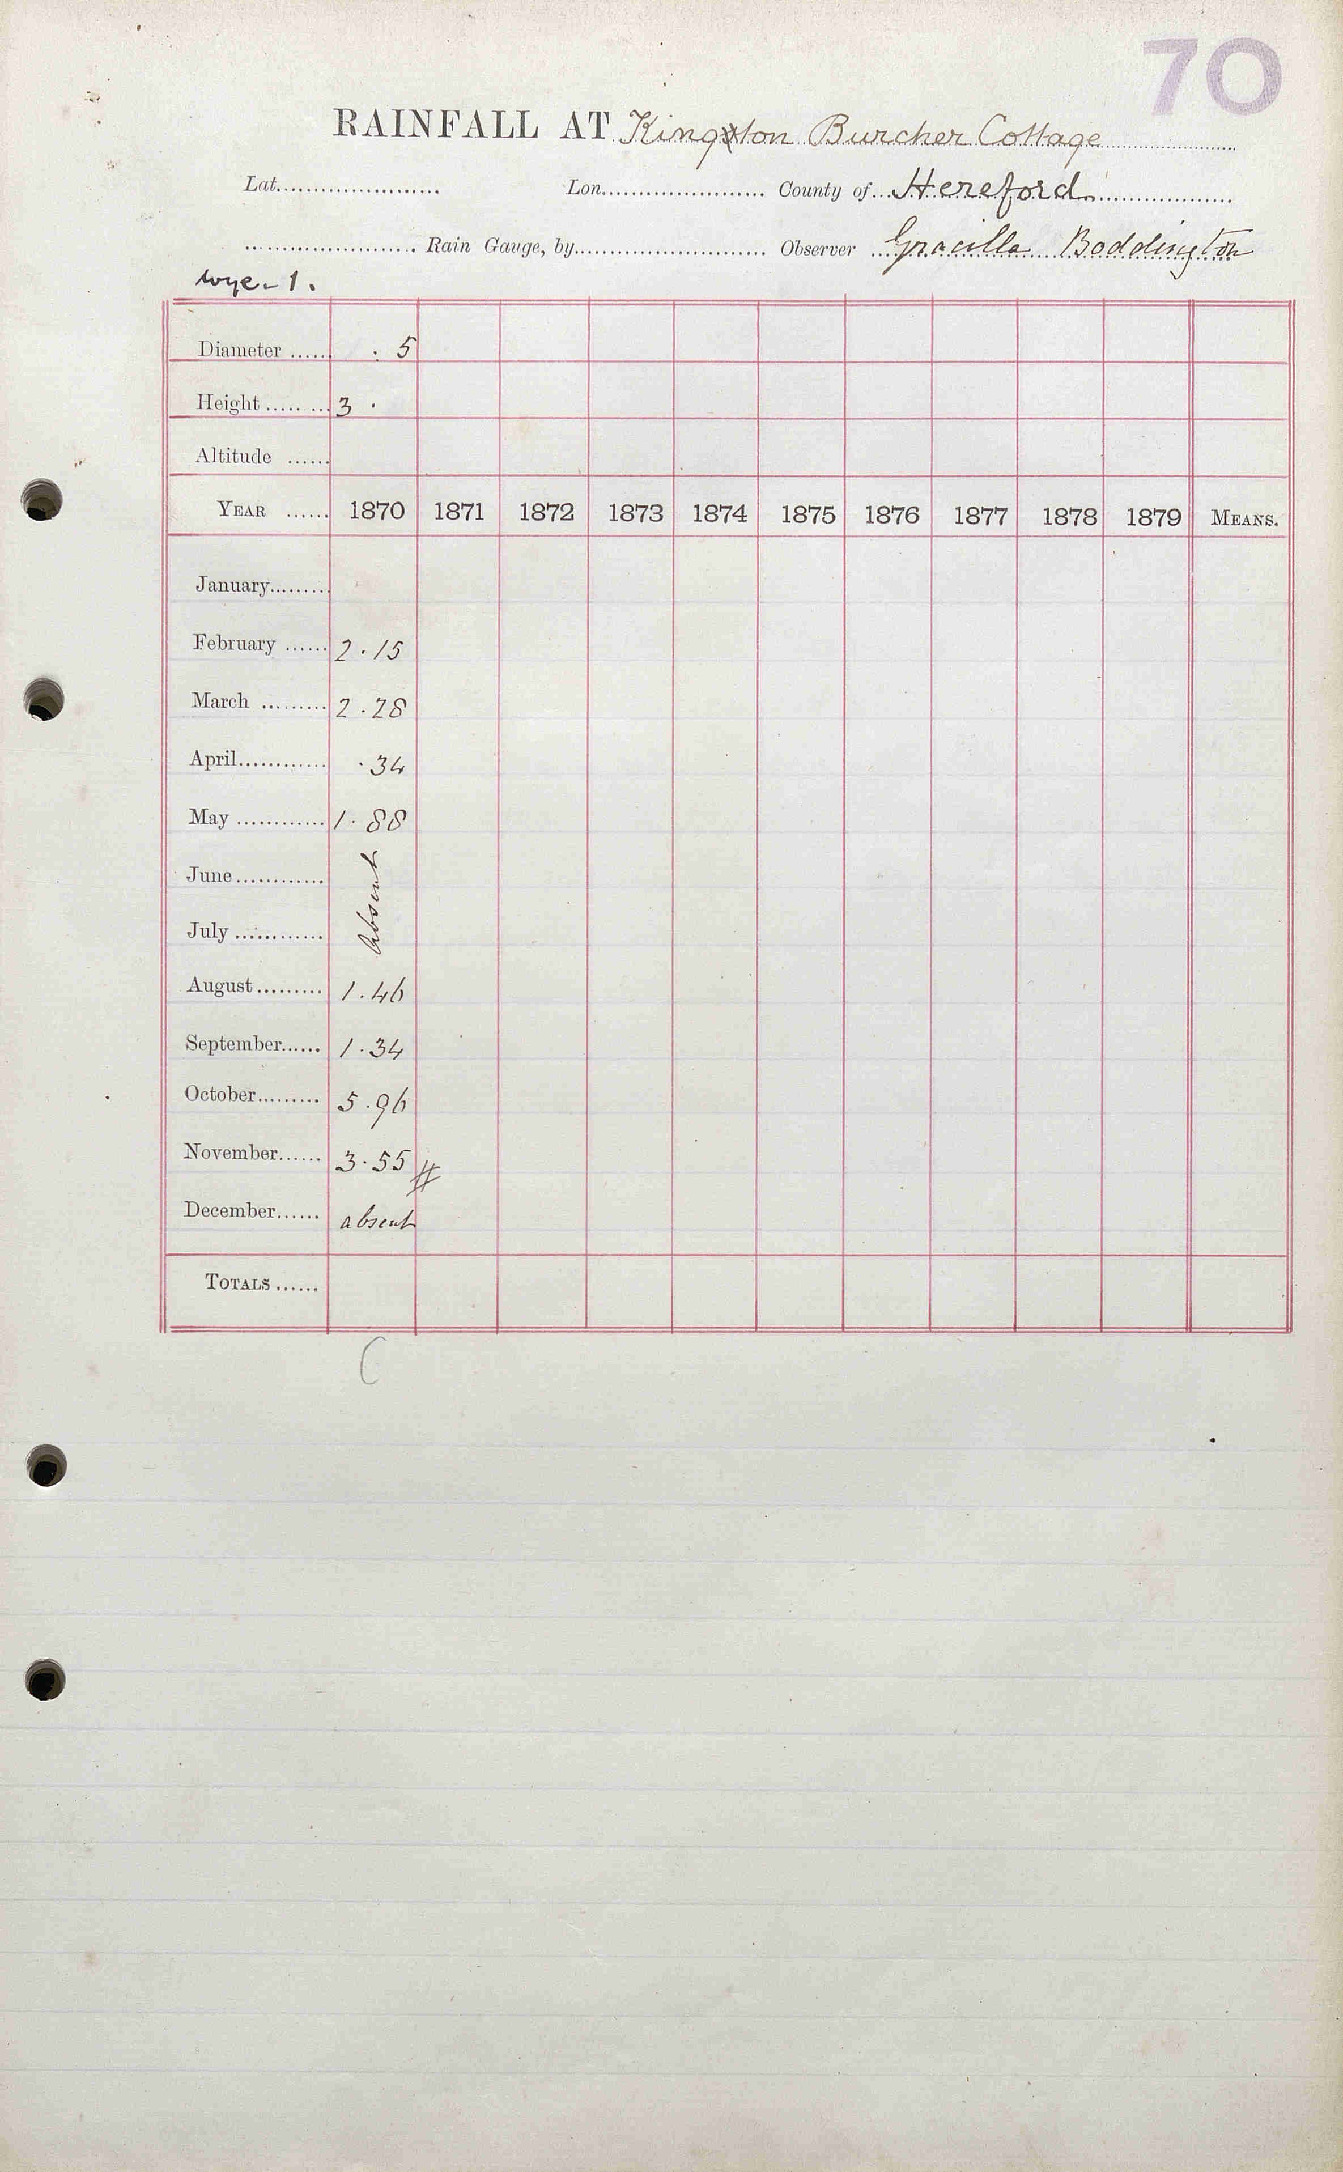 70
RAINFALL AT Kington Burcher Cottage
Lat. Lon. County of Hereford.
Rain Gauge, by Observer Boddington
Wye. 1.
Diameter : 5
Height 3 ·
Altitude
YEAR 1870 1871 1872 1873 1874 1875 1876 1877 1878 1879 MEANS.
January
February 2.15
March 2.28
April .34
May 1.88
June absent
July
August 1.46
September 1.34
October 5.96
November 3.55 #
December absent
TOTALS